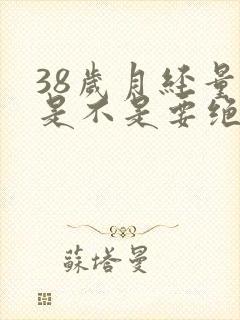 38歲月經量
是不是要绝
蘇塔曼